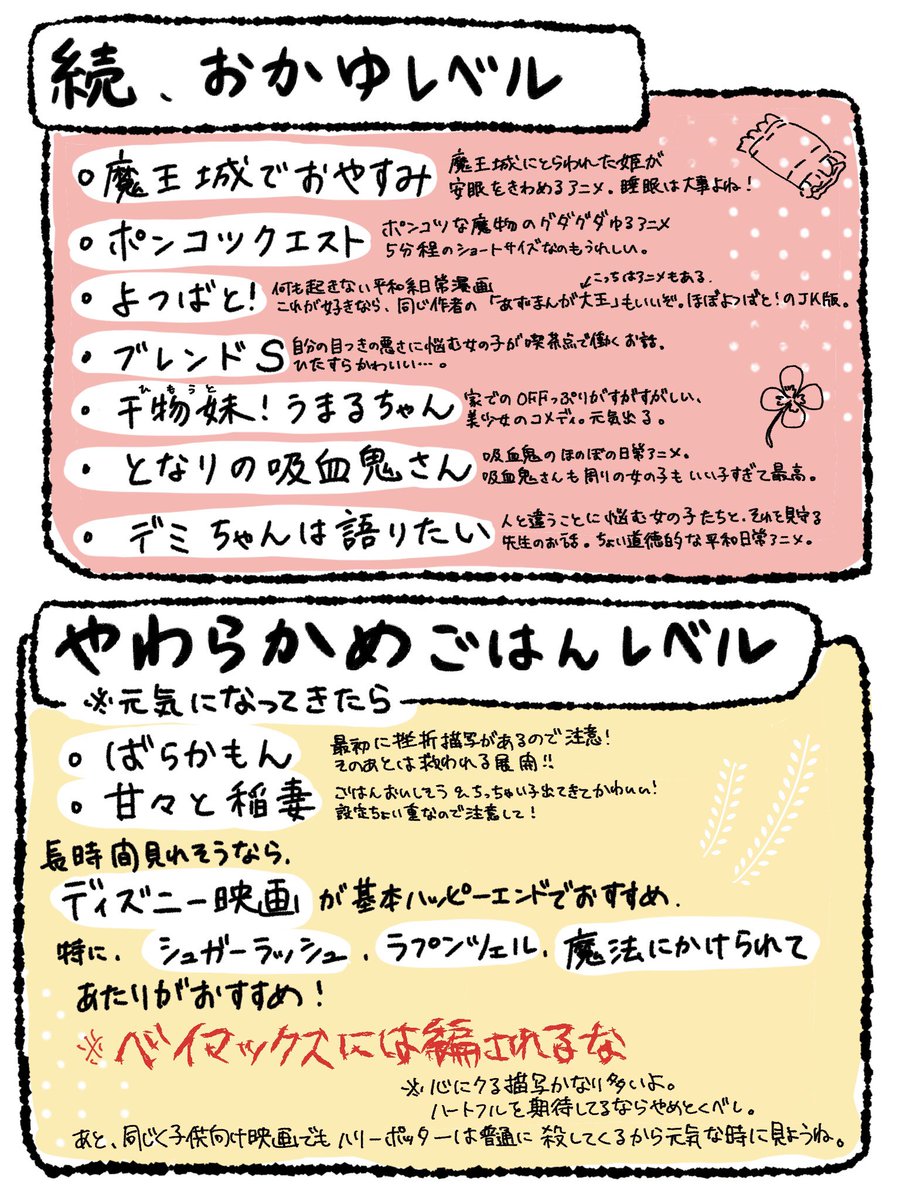 続、おかゆレベル
魔王城でおやすみ
魔王城にとらわれた姫が
安眠をきわめるアニメ。睡眠は大事よね!
ポンコツクエスト
ポンコツな魔物のグダグダゆるアニメ
5分程のショートサイズなのもうれしい。
よつばと!
何も起きない平和系日常漫画
こっちはアニメもある。
これが好きなら、同じ作者の「あずまんが大王」もいいぞ。ほぼよつばと!のJK版。
ブレンドS
自分の目つきの悪さに悩む女の子が喫茶点で働くお話。
ひたすらかわいい…。
ひもうと
干物妹!うまるちゃん
家でのOFFっぷりがすがすがしい、
美少女のコメディ。元気出る。
となりの吸血鬼さん
吸血鬼のほのぼの日常アニメ。
吸血鬼さんも周りの女の子もいい子すぎて最高。
デミちゃんは語りたい
人と違うことに悩む女の子たちと、それを見守る
先生のお話。ちょい道徳的な平和日常アニメ。
やわらかめごはんレベル
※元気になってきたら
ばらかもん
最初に挫折描写があるので注意!
そのあとは救われる展開!!
甘々と稲妻
ごはんおいしそう&ちっちゃい子出てきてかわいい!
設定ちょい重なので注意して!
長時間見れそうなら、
ディズニー映画が基本ハッピーエンドでおすすめ.
特に、シュガーラッシュ、ラプンツェル、魔法にかけられて
あたりがおすすめ!
※ベイマックスには騙されるな
※心にクる描写かなり多いよ。
ハートフルを期待してるならやめとくべし。
あと、同じく子供向け映画でもハリーポッターは普通に殺してくるから元気な時に見ようね。